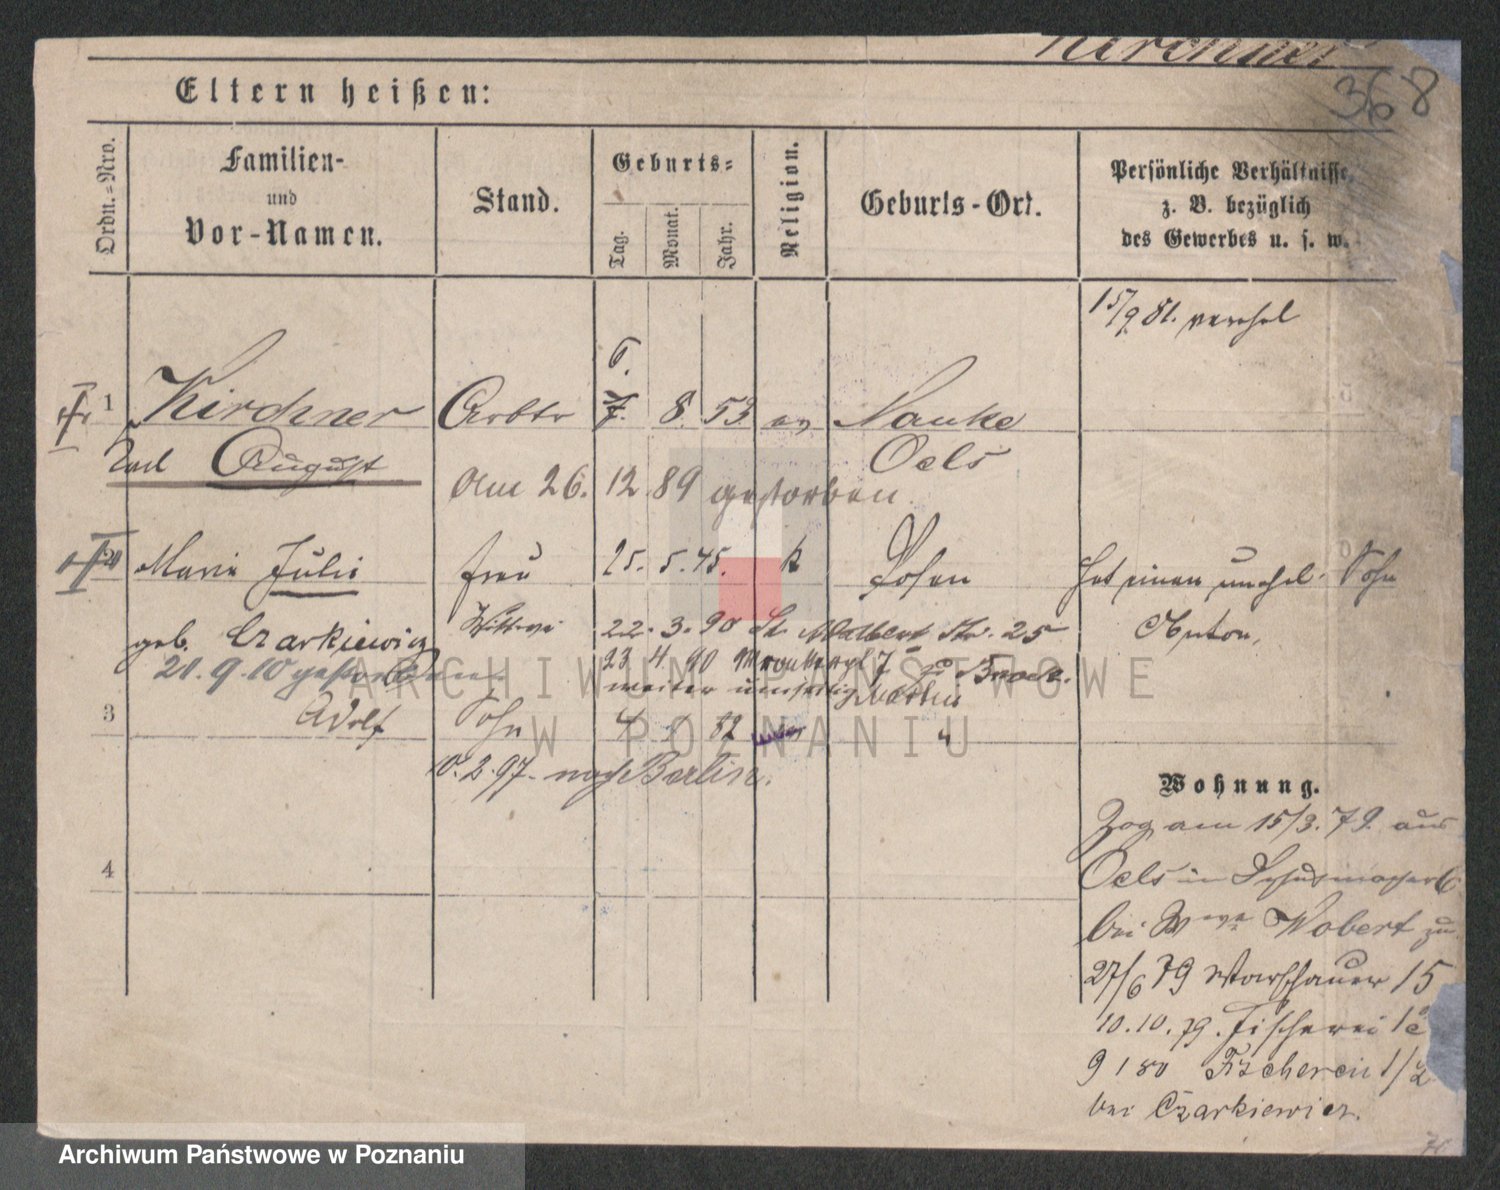 Kirchner
368
Eltern heißen:
Ordn.=Nro.
Familien-
und
Vor-Namen.
Stand.
Geburts=
Tag.
Monat.
Jahr.
Religion.
Geburts-Ort.
Persönliche Verhältnisse,
z. B. bezüglich
des Gewerbes u. s. w.
15/9 81. verehel
6.
1 Kirchner Arbtr 7. 8. 53 ev Nauke
Carl August Oels
Am 26. 12 89 gestorben
2 Marie Julie Frau 25. 5. 45. k Posen Hat einen unehel. Sohn
geb. Czarkiewicz Wittwe 22. 3. 90 St. Adalbert Str. 25 Anton,
21. 9. 10 gestorben 23 4 90 7
weiter umseitig
3 Adolf Sohn 4 82 "
10. 2. 97. nach Berlin.
Wohnung.
Zog am 15/3. 79. aus
4 Oels in Schuhmacher 6
bei Wwe Wobert zu
27/6 79 Warschauer 15
10. 10. 79. Fischerei
9 1 80 Fischerei 1/2
bei Czarkiewicz.
ARCHIWUM PAŃSTWOWE
W POZNANIU
Archiwum Państwowe w Poznaniu